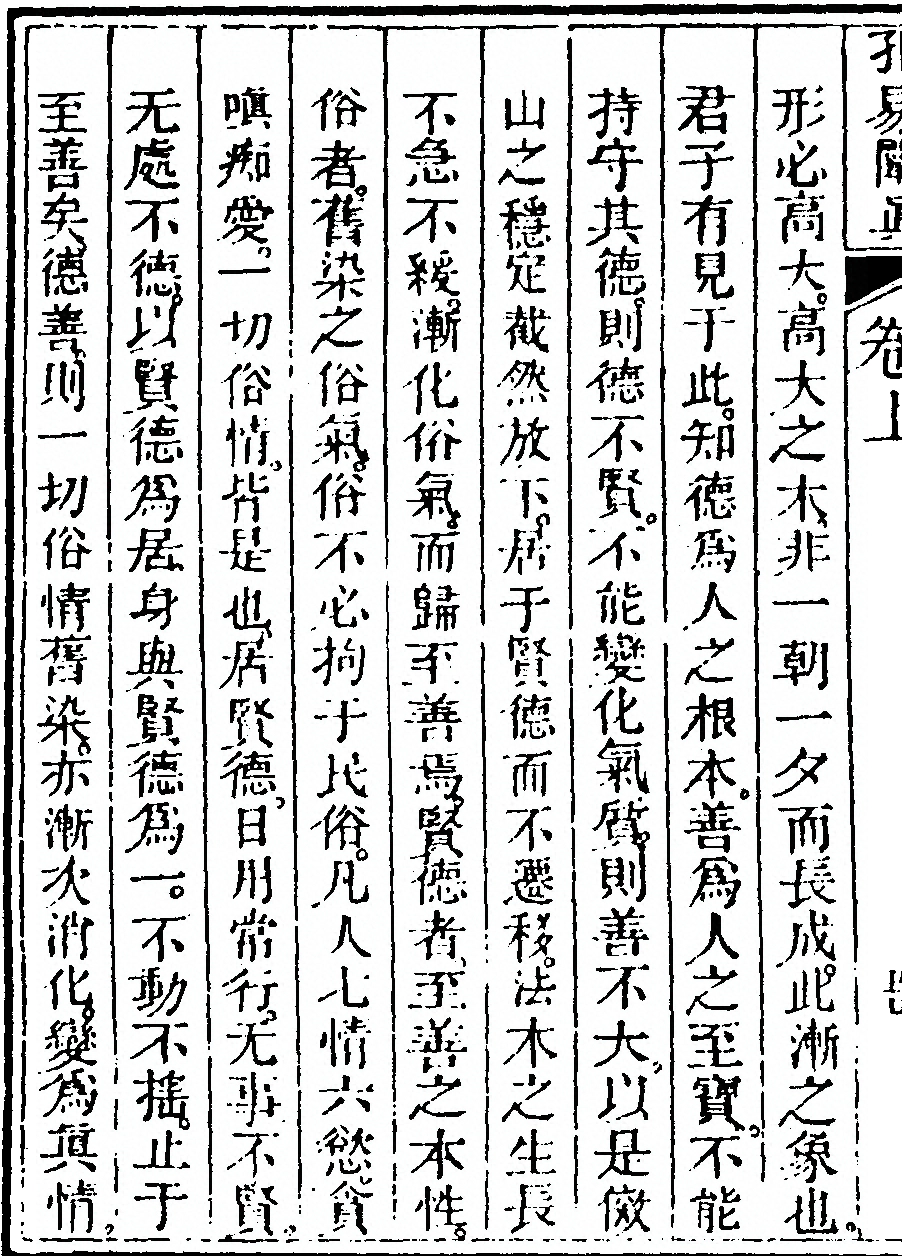 孔易闡真 卷上
形必高大。高大之木、非一朝一夕而長成。此漸之象也。
君子有見于此。知德爲人之根本。善爲人之至寶。不能
持守其德。則德不賢。不能變化氣質。則善不大。以是傚
山之穩定截然放下。居于賢德而不遷移。法木之生長
不急不緩。漸化俗氣。而歸至善焉。賢德者、至善之本性。
俗者。舊染之俗氣。俗不必拘于民俗。凡人七情六慾貪
嗔痴愛。一切俗情。皆是也、居賢德。日用常行。无事不賢。
无處不德。以賢德爲居、身與賢德爲一。不動不搖。止于
至善矣、德善。則一切俗情舊染。亦漸次消化。變爲真情。